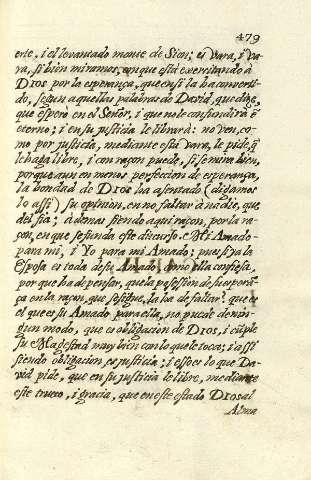 479
erte, i el levantado monte de Sion; es Vara, i Va-
ra, si bien miramos, con que està exercitando à
Dios por la esperança, que en si la ha converti-
do, segun aquellas palabras de David, que dize,
que esperò en el Señor, i que no le confundirà ē
eterno; i en su justicia le librarà: no ven, co-
mo por justicia, mediante esta Vara, le pide, q̃
le haga libre, i con razon puede, si se mira bien,
porque aun en menos perfeccion de esperança,
la bondad de Dios ha asentado (digamos
lo assi) su opinion, en no faltar à nadie, que
del fia: à demas siendo aqui razon, por la ra-
çon, en que se funda este discurso. Mi Amado
para mi, i Yo para mi Amado: pues si ya la
Esposa es toda de su Amado, como ella confiesa,
por que ha de pensar, que la possession de su esperā-
ça en la raçon, que se sigue, la ha de faltar? que es
el que es su Amado para ella, no puede de nin-
gun modo, que es obligacion de Dios, i cūple
su Magestad muy bien con lo que le toca; i assi
siendo obligacion, es justicia; i esso es lo que Da-
vid pide, que en su justicia le libre, mediante
este trueco, i gracia, que en este estado Dios al
Alma